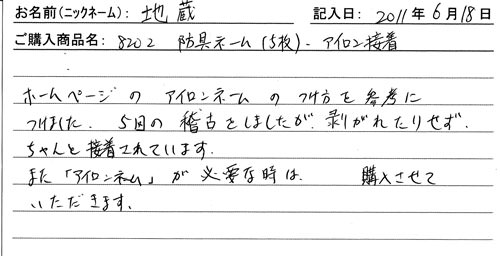 お名前(ニックネーム): 地蔵 記入日: 2011年6月18日
ご購入商品名: 8202 防具ネーム(5枚)・アイロン接着
ホームページの アイロンネームの つけ方を 参考に
つけました. 5回の 稽古をしましたが. 剥がれたりせず.
ちゃんと接着されています.
また「アイロンネーム」が 必要な時は. 購入させて
いただきます.